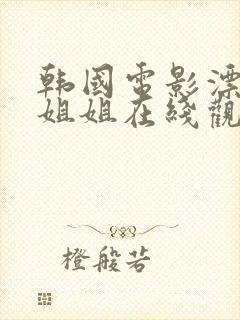 韩國電影漂
姐姐在綫觀
橙般若